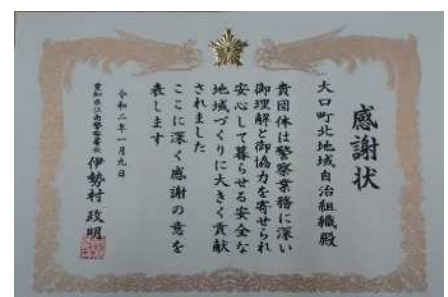 感謝状
大口町北地域自治組織殿
貴団体は警察業務に深い
御理解と御協力を寄せられ
安心して暮らせる安全な
地域づくりに大きく貢献
されました
ここに深く感謝の意を
表します
令和二年一月九日
愛知県江南警察署長 伊勢村 政明